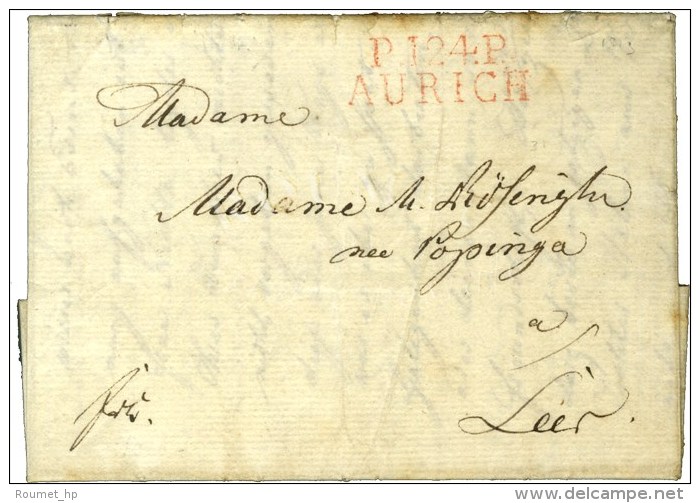 P.124.P.
AURICH
Madame
Madame M.
nee Popinga
a
Leer.
frc.
Roumet_hp
delcampe.net